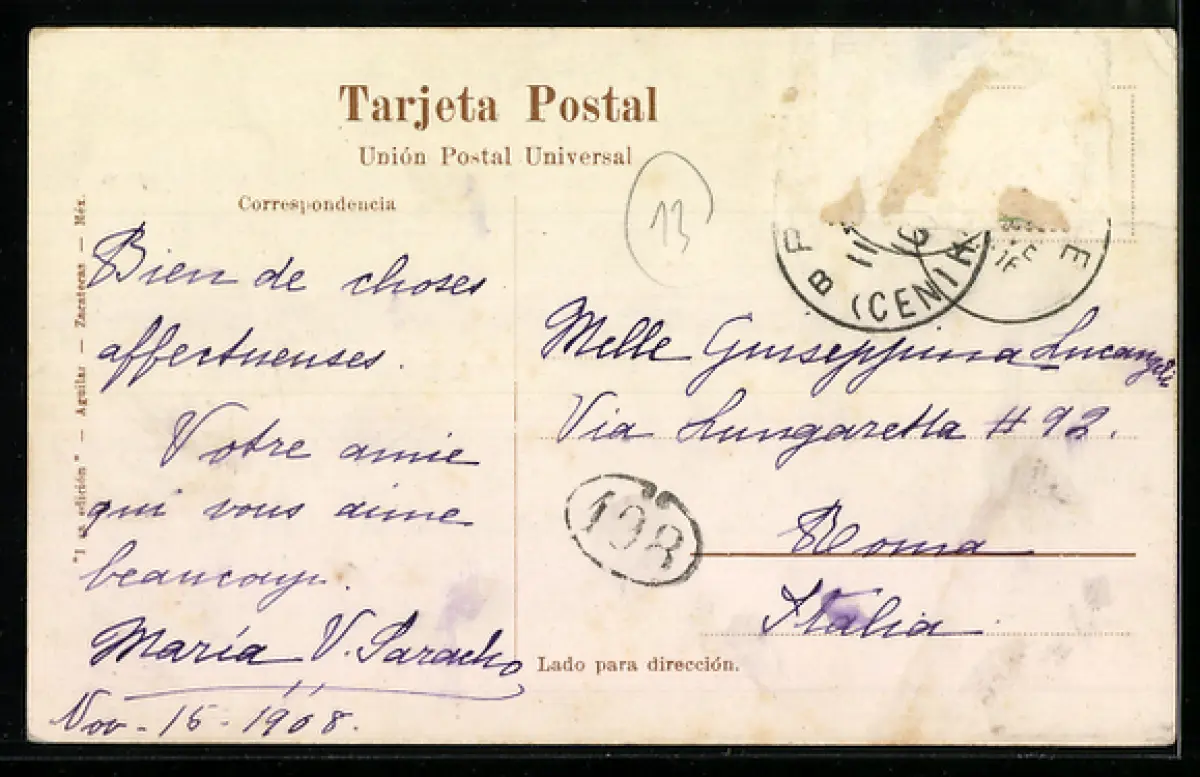 Tarjeta Postal
Unión Postal Universal
Correspondencia
Bien de choses
affectueuses.
Votre amie
qui vous aime
beaucoup.
María V. Saracho
Nov - 15 - 1908.
13
Melle Giuseppina Lucangeli
Via Lungaretta # 92.
Roma
Italia
198
(CENT
Lado para dirección.
edición" — Aguilar — Zacatecas — Méx.